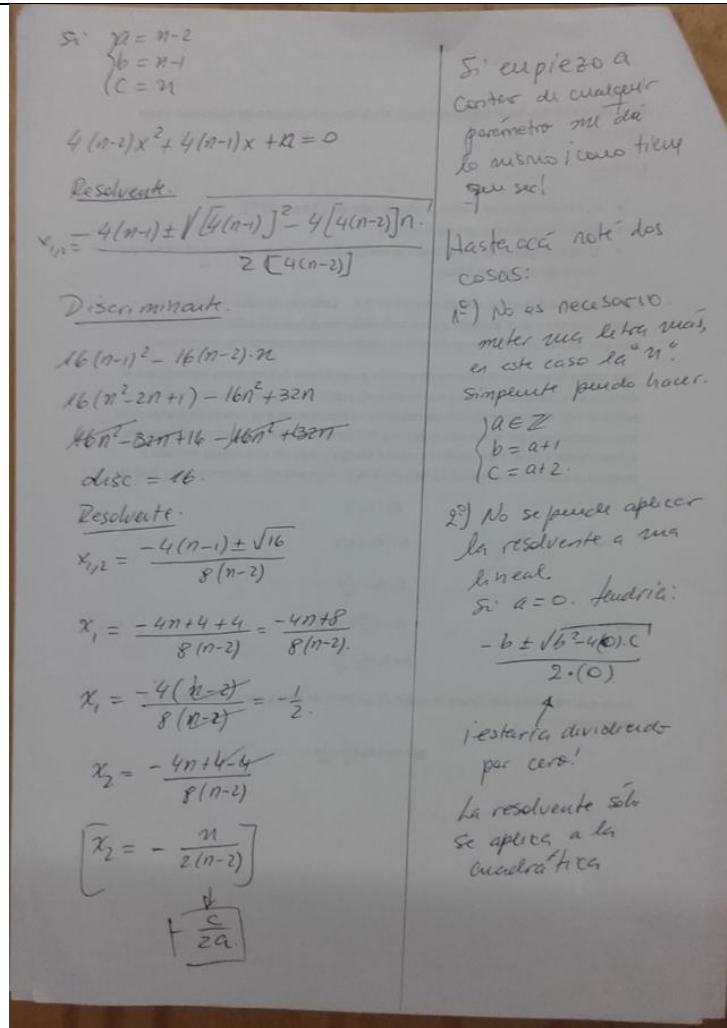 Si a = n-2
b = n-1
c = n
4(n-2)x² + 4(n-1)x + n = 0
Resolvente.
x₁,₂ = - 4(n-1) ± √[4(n-1)]² - 4[4(n-2)]n.
2 [4(n-2)]
Discriminante.
16(n-1)² - 16(n-2)·n
16(n²-2n+1) - 16n² + 32n
16n² - 32n + 16 - 16n² + 32n
disc = 16.
Resolvente.
x₁,₂ = -4(n-1) ± √16
8(n-2)
x₁ = -4n+4+4 = -4n+8
8(n-2) 8(n-2).
x₁ = -4(n-2) = - 1
8(n-2) 2.
x₂ = - 4n+4-4
8(n-2)
x₂ = - n
2(n-2)
- c
2a.
Si empiezo a
contar de cualquier
parámetro me dá
lo mismo ¡como tiene
que ser!
Hasta acá noté dos
cosas:
1º) No es necesario
meter una letra más,
en este caso la "n".
simpente puedo hacer.
a ∈ Z
b = a+1
c = a+2.
2º) No se puede aplicar
la resolvente a una
lineal.
Si a = 0. tendría:
- b ± √b² - 4(0).c
2·(0)
¡estaría dividiendo
por cero!
La resolvente sólo
se aplica a la
cuadrática